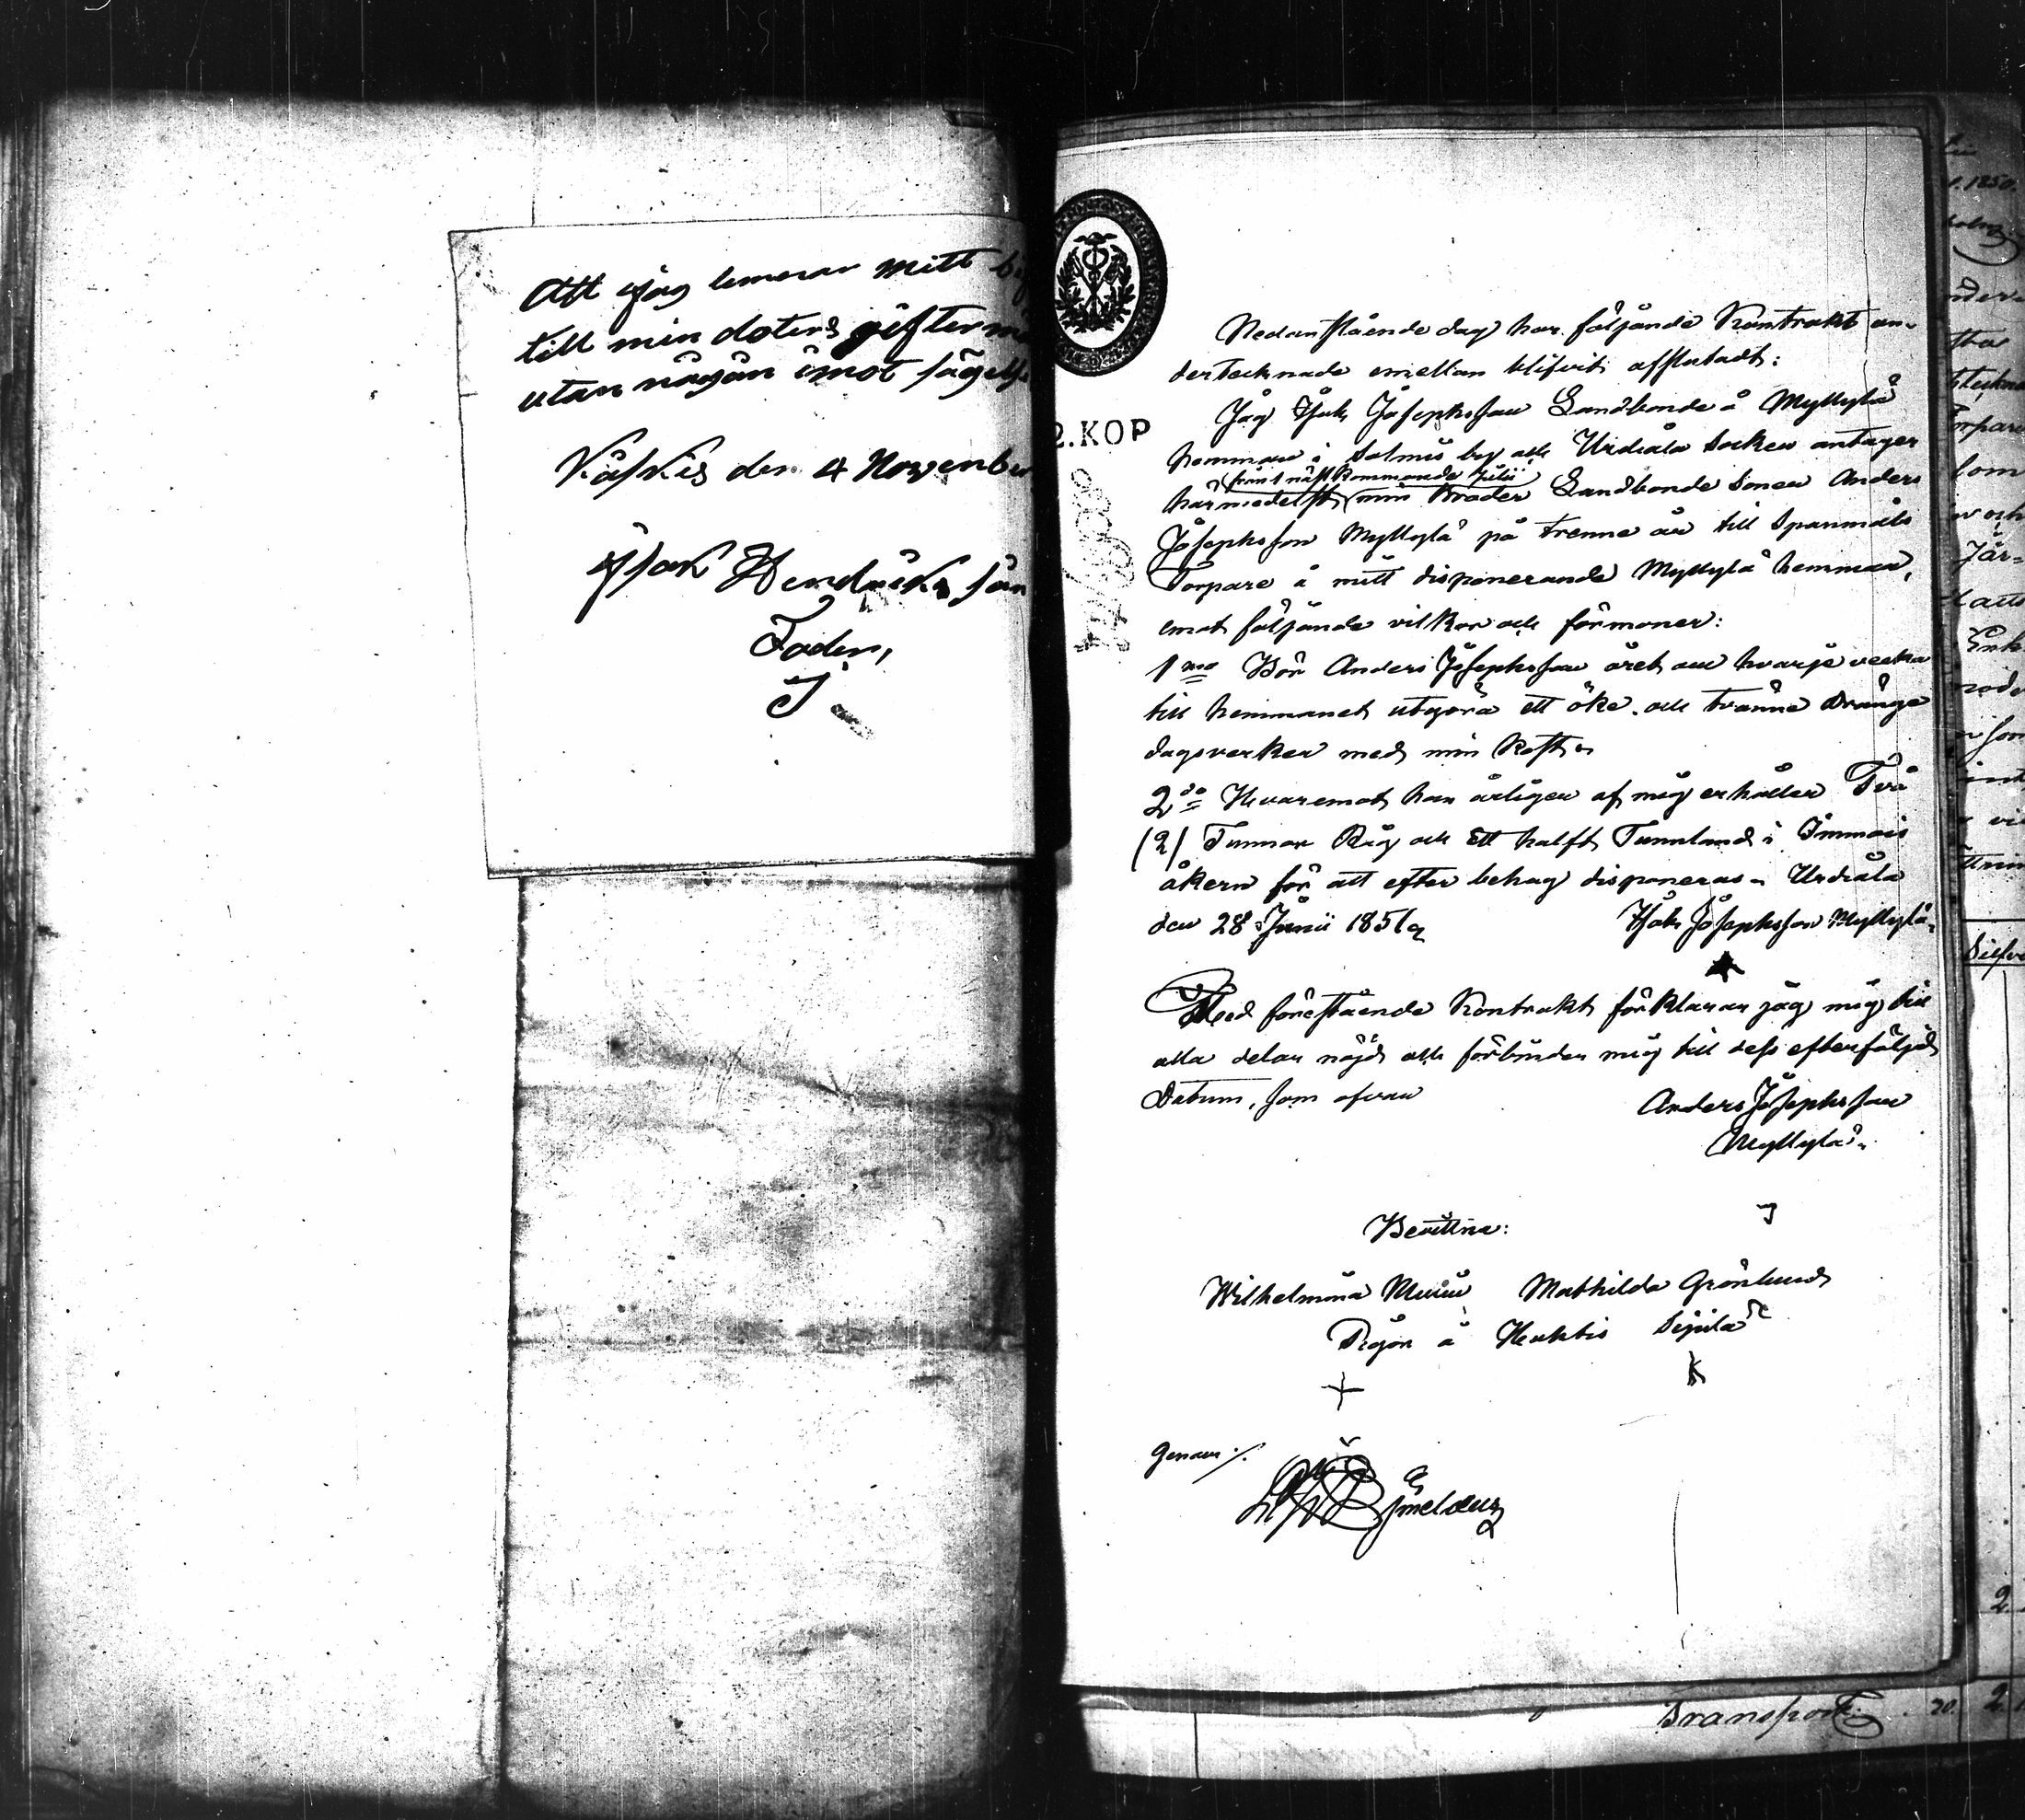 Att Jag lemnar mitt bif
till min doters giftermå
utan någån imot sägels
Kaskis den 4 November
Isak Hendricksson
Fader,
J
2.KOP
Nedanstående dag har följande Kontrakt un-
dertecknade emellan blifvit affslutadt:
Jag Isak Josephsson Landbonde å Myllylä
hemman i Salmis by och Urdiala Socken antager
från 1 näst kommande Julii
härmedelst min Broder Landbonde Sonen Anders
Josephsson Myllylä på trenne år till Spanmåls
Torpare å mitt disponerande Myllylä hemman,
emot följande vilkor och förmoner:
1mo Bör Anders Josephsson året om hvarje vecka
till hemmanet utgöra ett öke och tränne Dränge
dagsverken med min Kost.
2do Hvaremot han årligen af mig erhåller Två
(2) Tunnor Råg och Ett halft Tunnland i Immois
åkern för att efter behag disponeras. Urdiala
den 28 Junii 1851.
Isak Josephsson Myllylä.
Med förestående Kontrakt förklarar jag mig till
alla delar nöjd och förbinder mig till dess efterföljd
Datum, som ofvan
Anders Josephsson
Myllylä.
Bevittna:
Wilhelmina Mathilda Grönlund
Pigor å Huhtis Sipilä
+ K
Genom:/.
Transport.